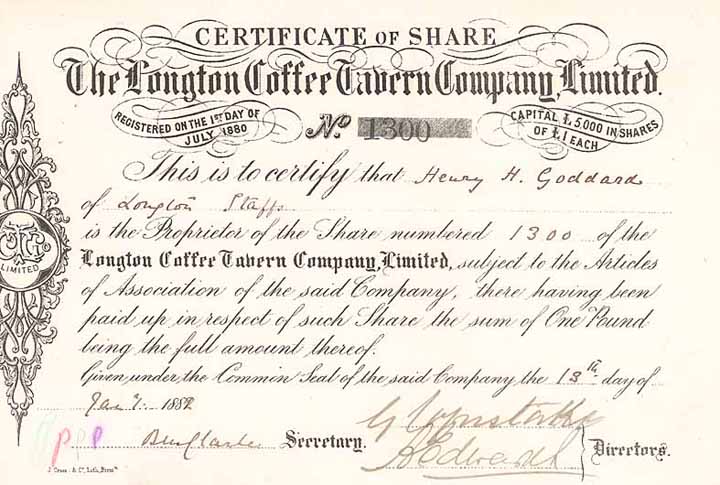 CERTIFICATE OF SHARE
The Longton Coffee Tavern Company, Limited.
REGISTERED ON THE 1ST DAY OF
JULY 1880
No 1300
CAPITAL £5,000 IN SHARES
OF £1 EACH
This is to certify that Henry H. Goddard
of Longton Staffs
is the Proprietor of the Share numbered 1300 of the
Longton Coffee Tavern Company, Limited, subject to the Articles
of Association of the said Company, there having been
paid up in respect of such Share the sum of One Pound
being the full amount thereof.
Given under the Common Seal of the said Company the 13th day of
Jany. 1882
Secretary.
Directors.
LIMITED
ppp